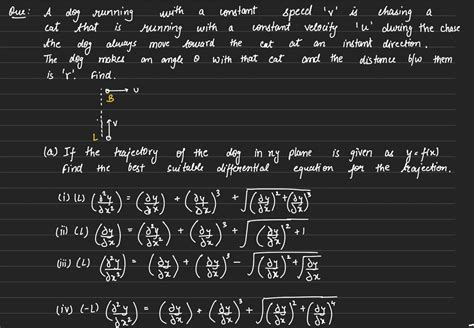 Que: A dog running with a constant speed 'v' is chasing a
cat that is running with a constant velocity 'u' during the chase
the dog always move toward the cat at an instant direction.
The dog makes an angle θ with that cat and the distance b/w them
is 'r'. Find.
B → u
↑ v
L
(a) If the trajectory of the dog in xy plane is given as y = f(x)
Find the best suitable differential equation for the trajection.
(i) (L) (∂²y/∂x²) = (∂y/∂x) + (∂y/∂x)³ + √((∂y/∂x)² + (∂y/∂x)³)
(ii) (L) (∂y/∂x) = (∂²y/∂x²) + (∂y/∂x)³ + √((∂y/∂x)² + 1)
(iii) (L) (∂²y/∂x²) = (∂y/∂x) + (∂y/∂x)³ - √((∂y/∂x)² + √(∂y/∂x))
(iv) (-L) (∂²y/∂x²) = (∂y/∂x) + (∂y/∂x)³ + √((∂y/∂x)² + (∂y/∂x)⁴)